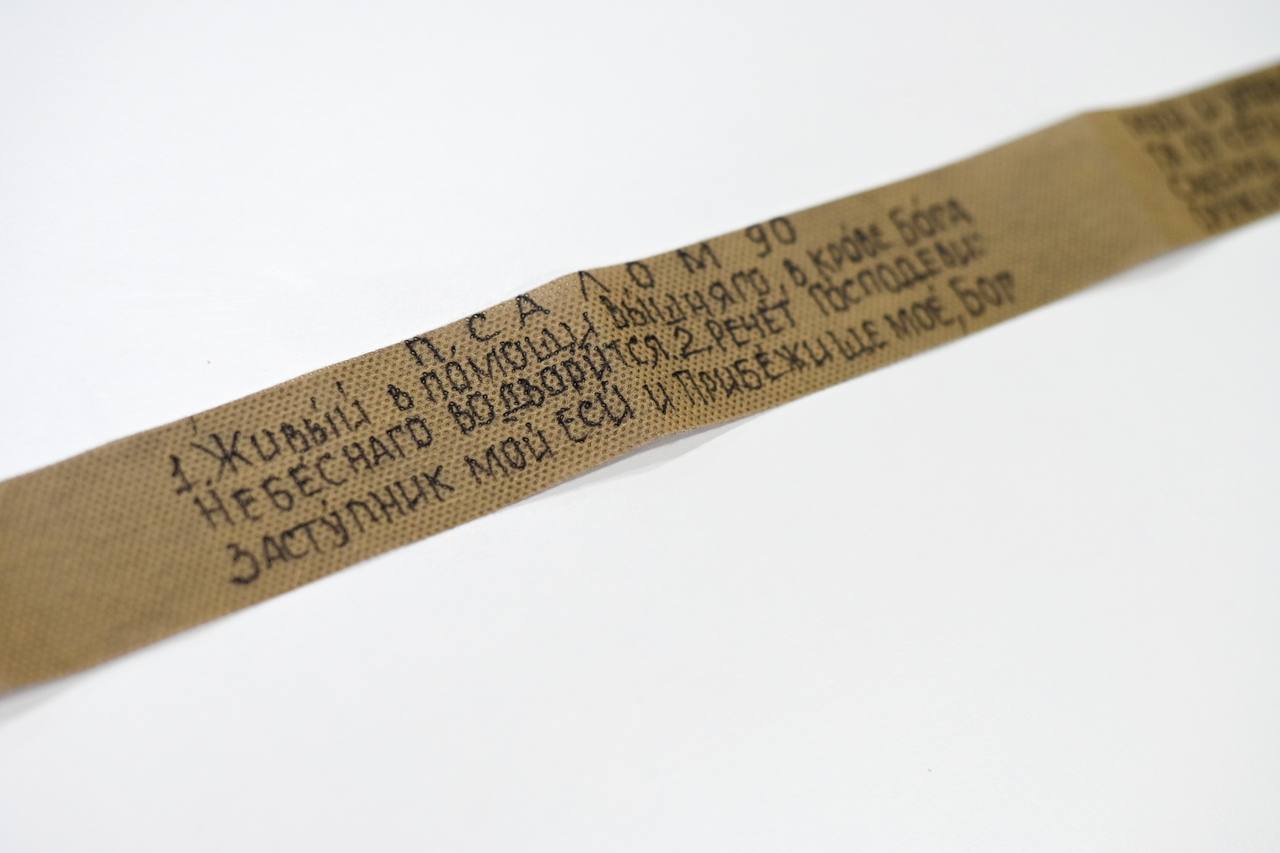 ПСАЛОМ 90
1. Живы́й в помощи вы́шняго, в кро́ве Бо́га
Небе́снаго водвори́тся. 2. Рече́т Господеви:
Засту́пник мой еси́ и прибе́жище мое́, Бог